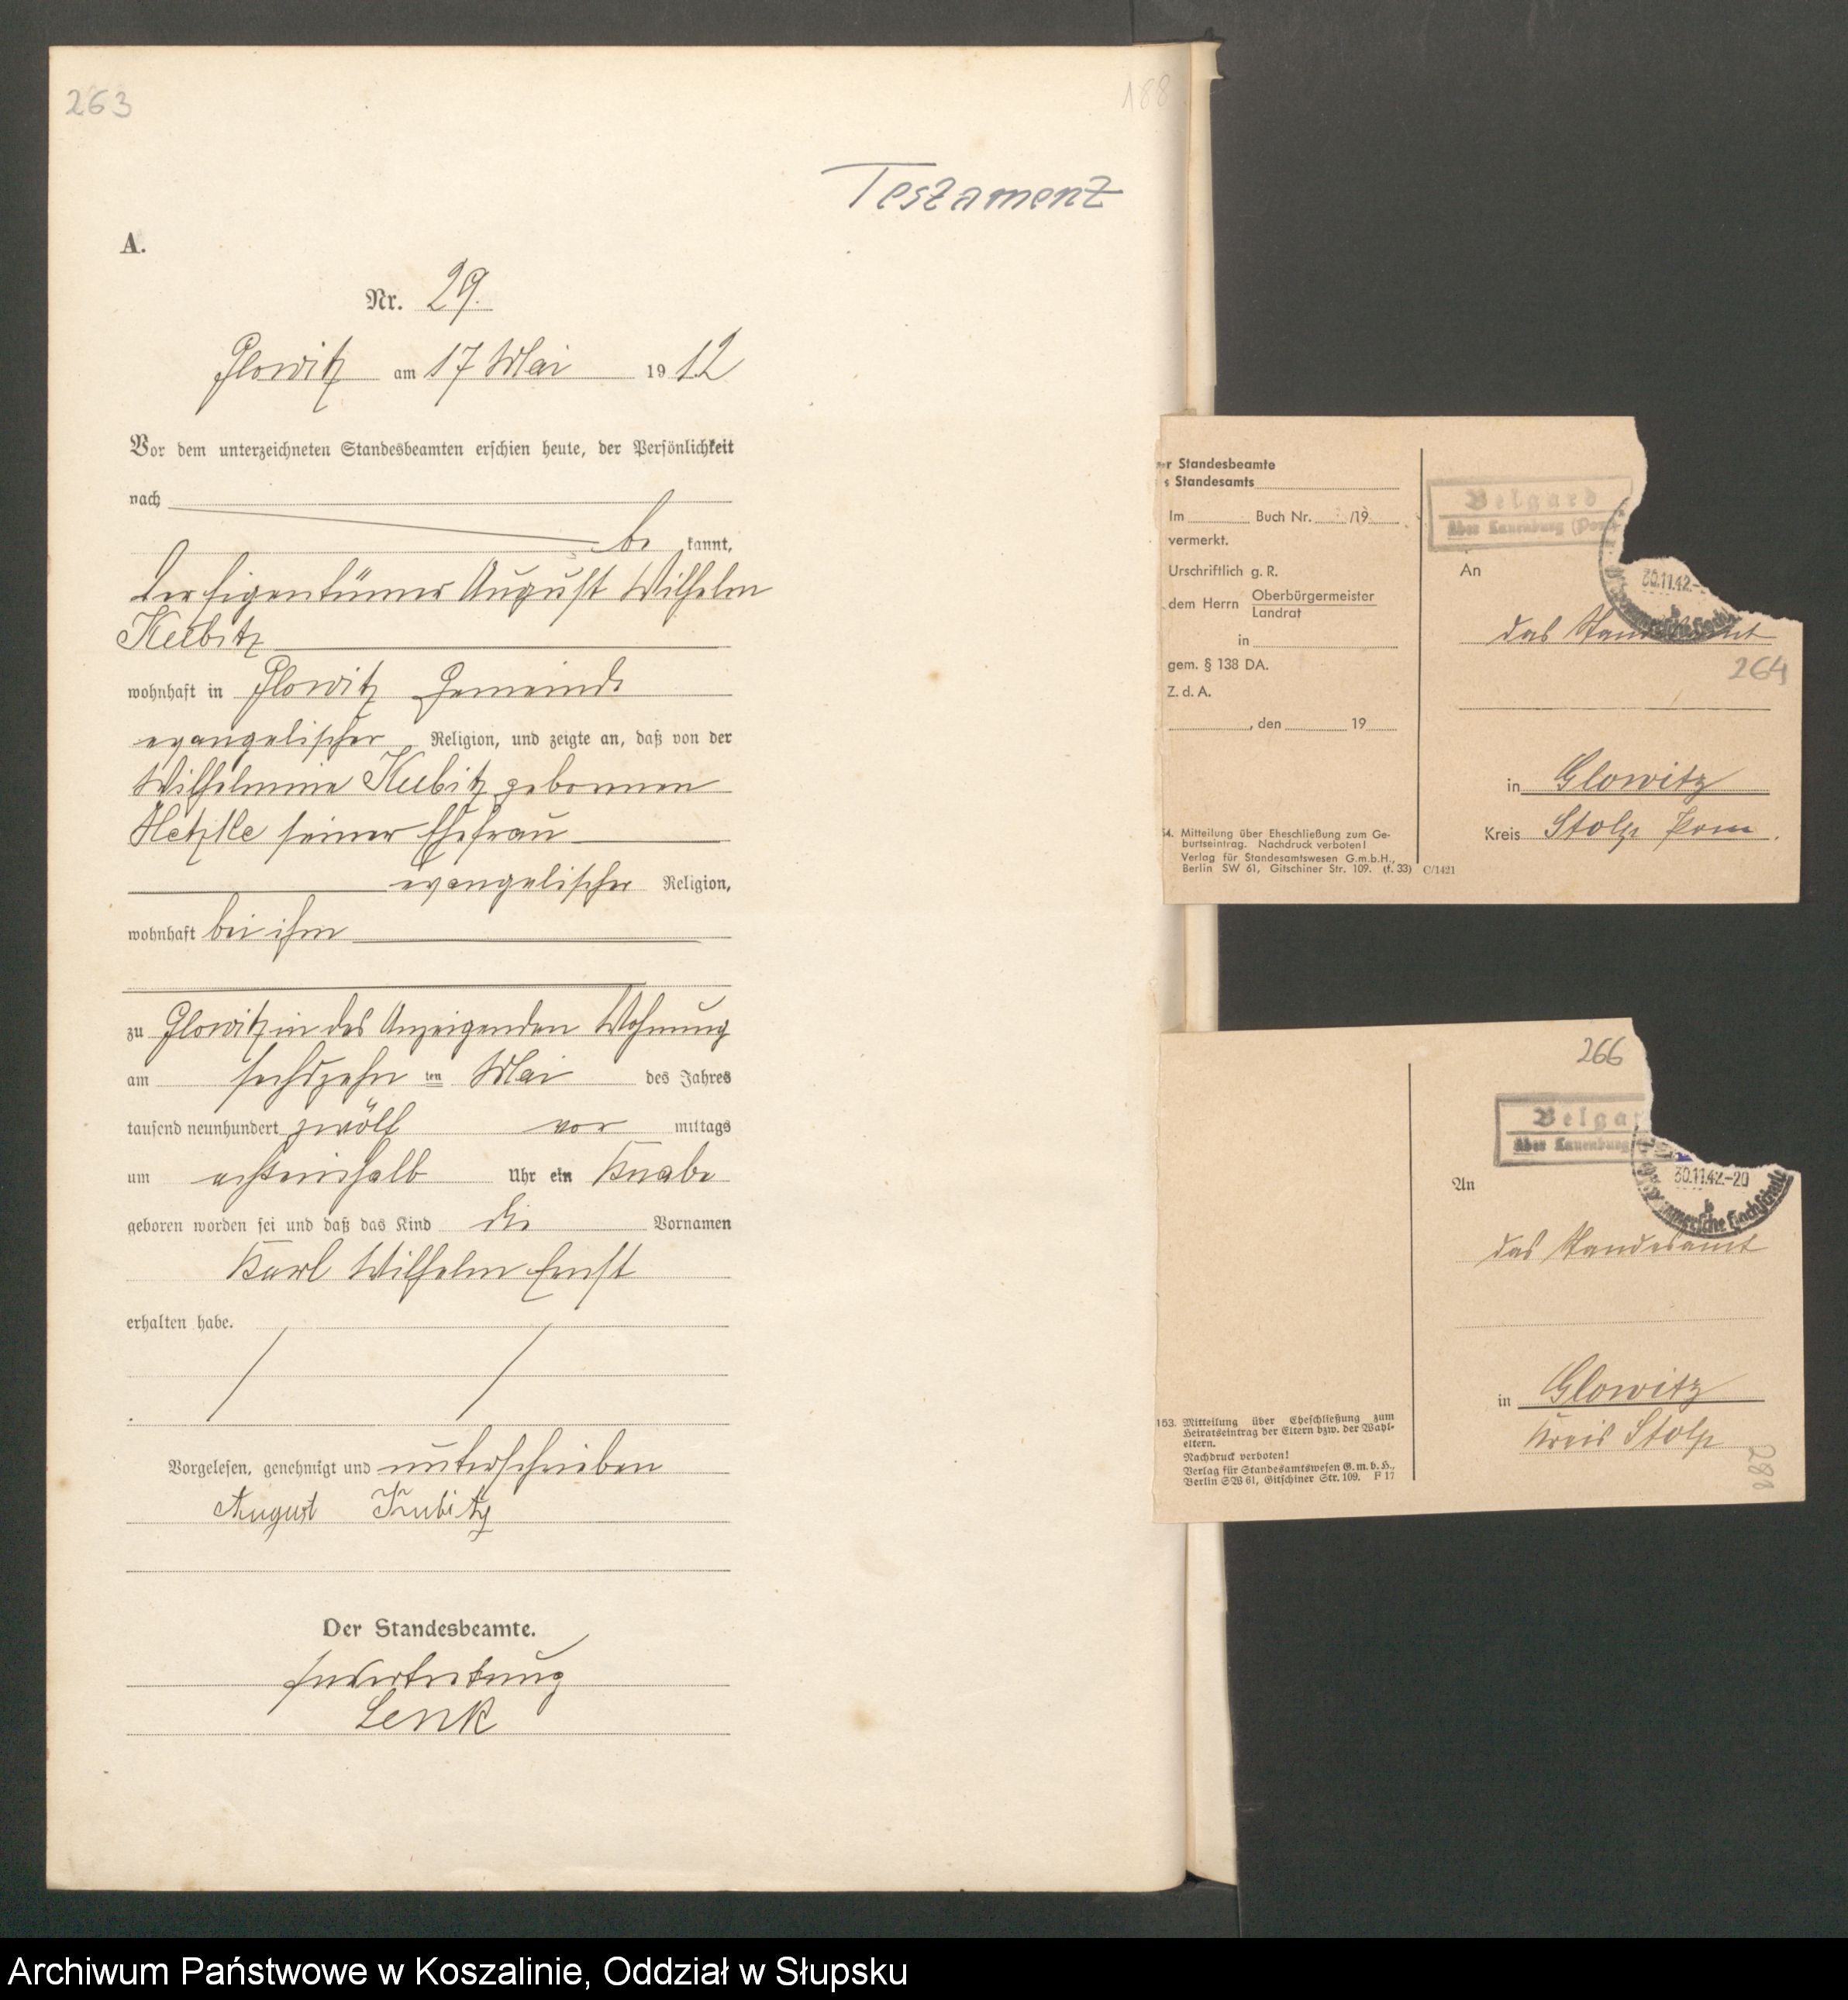 263
188
Testament
A.
Nr. 29.
Glowitz am 17 Mai 1912
Vor dem unterzeichneten Standesbeamten erschien heute, der Persönlichkeit
nach
be kannt,
der Eigentümer August Wilhelm
Kubitz
wohnhaft in Glowitz Gemeinde
evangelischer Religion, und zeigte an, daß von der
Wilhelmine Kubitz geborenen
Hetzke seiner Ehefrau
evangelischer Religion,
wohnhaft bei ihm
zu Glowitz in des Anzeigenden Wohnung
am sechszehn ten Mai des Jahres
tausend neunhundert zwölf vor mittags
um achteinhalb Uhr ein Knabe
geboren worden sei und daß das Kind die Vornamen
Karl Wilhelm Ernst
erhalten habe.
Vorgelesen, genehmigt und unterschrieben
August Kubitz
Der Standesbeamte.
In Vertretung
Lenk
Standesbeamte
s Standesamts
Im Buch Nr. /19
vermerkt.
Urschriftlich g. R.
dem Herrn Oberbürgermeister
Landrat
in
gem. § 138 DA.
Z. d. A.
, den 19
54. Mitteilung über Eheschließung zum Ge-
burtseintrag. Nachdruck verboten!
Verlag für Standesamtswesen G.m.b.H.,
Berlin SW 61, Gitschiner Str. 109. (f. 33) C/1421
Belgard
über Lauenburg (Pom
30.11.42.-
An
das Standesamt
264
in Glowitz
Kreis Stolp Pom.
266
Belgar
über Lauenburg
30.11.42.-20
b
An
das Standesamt
in Glowitz
Kreis Stolp
288
153. Mitteilung über Eheschließung zum
Heiratseintrag der Eltern bzw. der Wahl-
eltern.
Nachdruck verboten!
Verlag für Standesamtswesen G. m. b. H.,
Berlin SW 61, Gitschiner Str. 109. F 17
Archiwum Państwowe w Koszalinie, Oddział w Słupsku